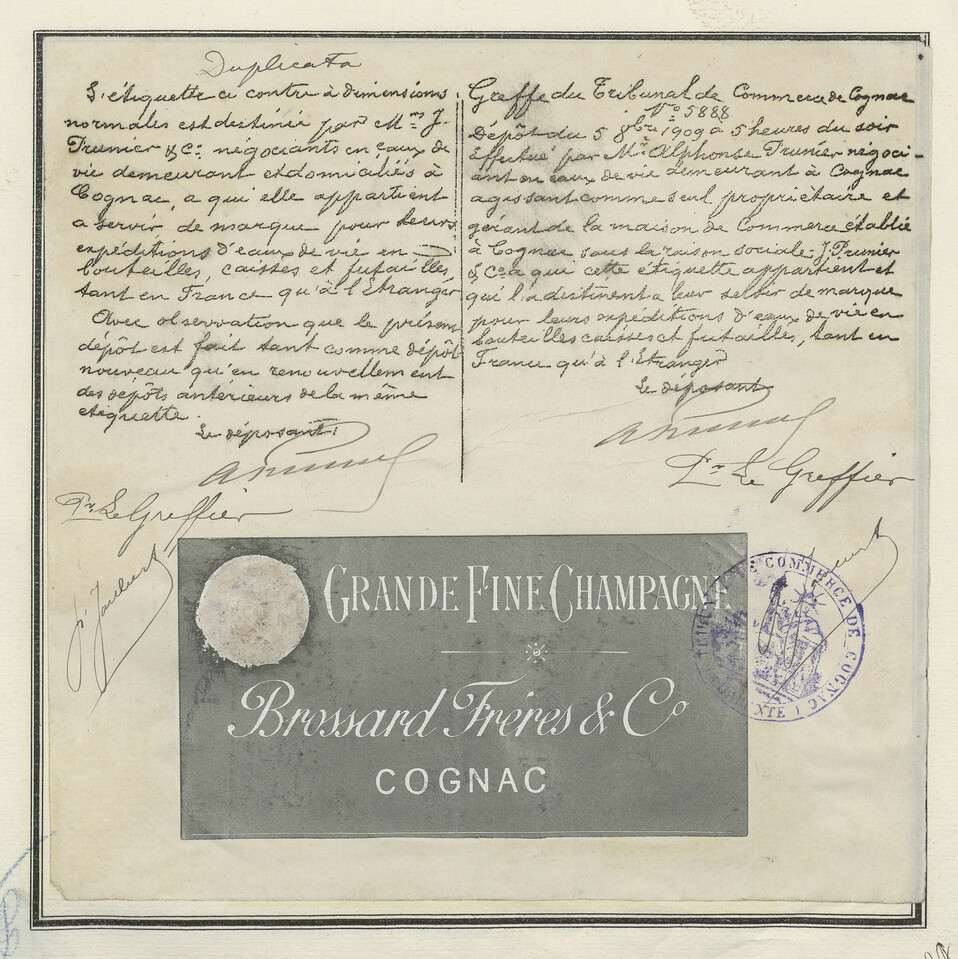 Duplicata
L'étiquette ci contre à dimensions
normales est destinée par Mrs J.
Prunier & Co. négociants en eaux de
vie demeurant et domiciliés à
Cognac, a qui elle appartient
a servir de marque pour leurs
expéditions d'eaux de vie en
bouteilles, caisses et futailles,
tant en France qu'à l'Etranger
Avec observation que le présent
dépôt est fait tant comme dépôt
nouveau qu'en renouvellement
des dépôts antérieurs de la même
etiquette.
Le déposant:
Pr Le Greffier
Greffe du Tribunal de Commerce de Cognac
No 5888
Dépôt du 5 8bre 1909 à 5 heures du soir
Effectué par Mr Alphonse Prunier négoci-
ant en eaux de vie demeurant à Cognac
agissant comme seul propriétaire et
gérant de la maison de Commerce établie
à Cognac sous la raison sociale J. Prunier
& Co à qui cette étiquette appartient et
qui l'a destinent a leur servir de marque
pour leurs expéditions d'eaux de vie en
bouteilles caisses et futailles, tant en
France qu'à l'Etranger
Le déposant
Pr Le Greffier
GRANDE FINE CHAMPAGNE
Brossard Fréres & Co
COGNAC
COMMERCE DE COGNAC